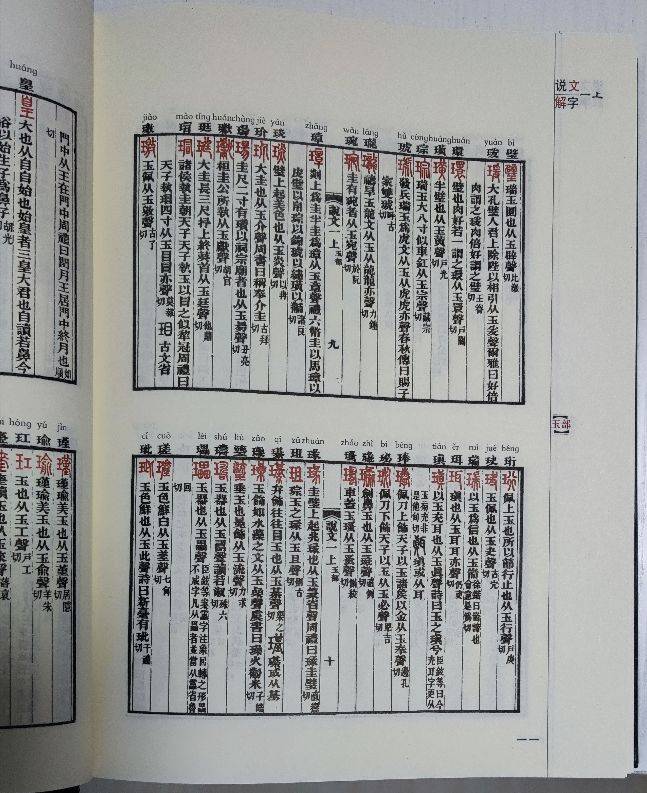 说文
解字
一上
bì
璧 瑞玉圜也从玉辟聲比激切
yuàn
瑗 大孔璧人君上除陛以相引从玉爰聲爾雅曰好倍
肉謂之瑗肉倍好謂之璧王眷切
huán
環 璧也肉好若一謂之環从玉睘聲戶關切
huáng
璜 半璧也从玉黃聲戶光切
cóng
琮 瑞玉大八寸似車釭从玉宗聲藏宗切
hǔ
琥 發兵瑞玉爲虎文从玉从虎虎亦聲春秋傳曰賜子
家雙琥呼古切
lóng
瓏 禱旱玉龍文从玉从龍龍亦聲力鍾切
wǎn
琬 圭有琬者从玉宛聲於阮切
說文一上 玉部
九
zhāng
璋 剡上爲圭半圭爲璋从玉章聲禮六幣圭以馬璋以
皮璧以帛琮以錦琥以繡璜以黼諸良切
yǎn
琰 璧上起美色也从玉炎聲以冉切
jiè
玠 大圭也从玉介聲周書曰稱奉介圭古拜切
chàng
瑒 圭尺二寸有瓚以祠宗廟者也从玉昜聲丑亮切
huán
瓛 桓圭公所執从玉獻聲胡官切
tǐng
珽 大圭長三尺抒上終葵首从玉廷聲他鼎切
mào
瑁 諸侯執圭朝天子天子執玉以冒之似犂冠周禮曰
天子執瑁四寸从玉冒冒亦聲莫報切 古文省
jiǎo
璬 玉佩从玉敫聲古了切
玉部
héng
珩 佩上玉也所以節行止也从玉行聲戶庚切
jué
玦 玉佩也从玉夬聲古穴切
ruì
瑞 以玉爲信也从玉耑
ěr
珥 瑱也从玉耳耳亦聲仍吏切
tiàn
瑱 以玉充耳也从玉眞聲詩曰玉之瑱兮
瑱或从耳
běng
琫 佩刀上飾天子以玉諸矦以金从玉奉聲邊孔切
bì
珌 佩刀下飾天子以玉从玉必聲卑吉切
zhì
璏 劍鼻玉也从玉彘聲直例切
zhǎo
瑵 車蓋玉瑵从玉蚤聲側絞切
說文一上 玉部
十
zhuàn
瑑 圭璧上起兆瑑也从玉篆省聲周禮曰瑑圭璧直戀切
zǔ
珇 琮玉之瑑从玉且聲則古切
qí
璂 弁飾往往冒玉也从玉綦聲渠之切 璂或从基
zǎo
璪 玉飾如水藻之文从玉喿聲虞書曰璪火黺米子皓切
liú
瑬 垂玉也冕飾从玉流聲力求切
shú
璹 玉器也从玉聲讀若淑殊六切
léi
瓃 玉器也从玉畾聲
回切
cuō
瑳 玉色鮮白从玉差聲七何切
cǐ
玼 玉色鮮也从玉此聲詩曰新臺有玼千禮切
一一
huáng
皇 大也从自自始也始皇者三皇大君也自讀若鼻今
俗以始生子爲鼻子胡光切
門中从王在門中周禮曰閏月王居門中終月也如順切
jǐn
瑾 瑾瑜美玉也从玉堇聲居隱切
yú
瑜 瑾瑜美玉也从玉俞聲羊朱切
hóng
玒 玉也从玉工聲戶工切